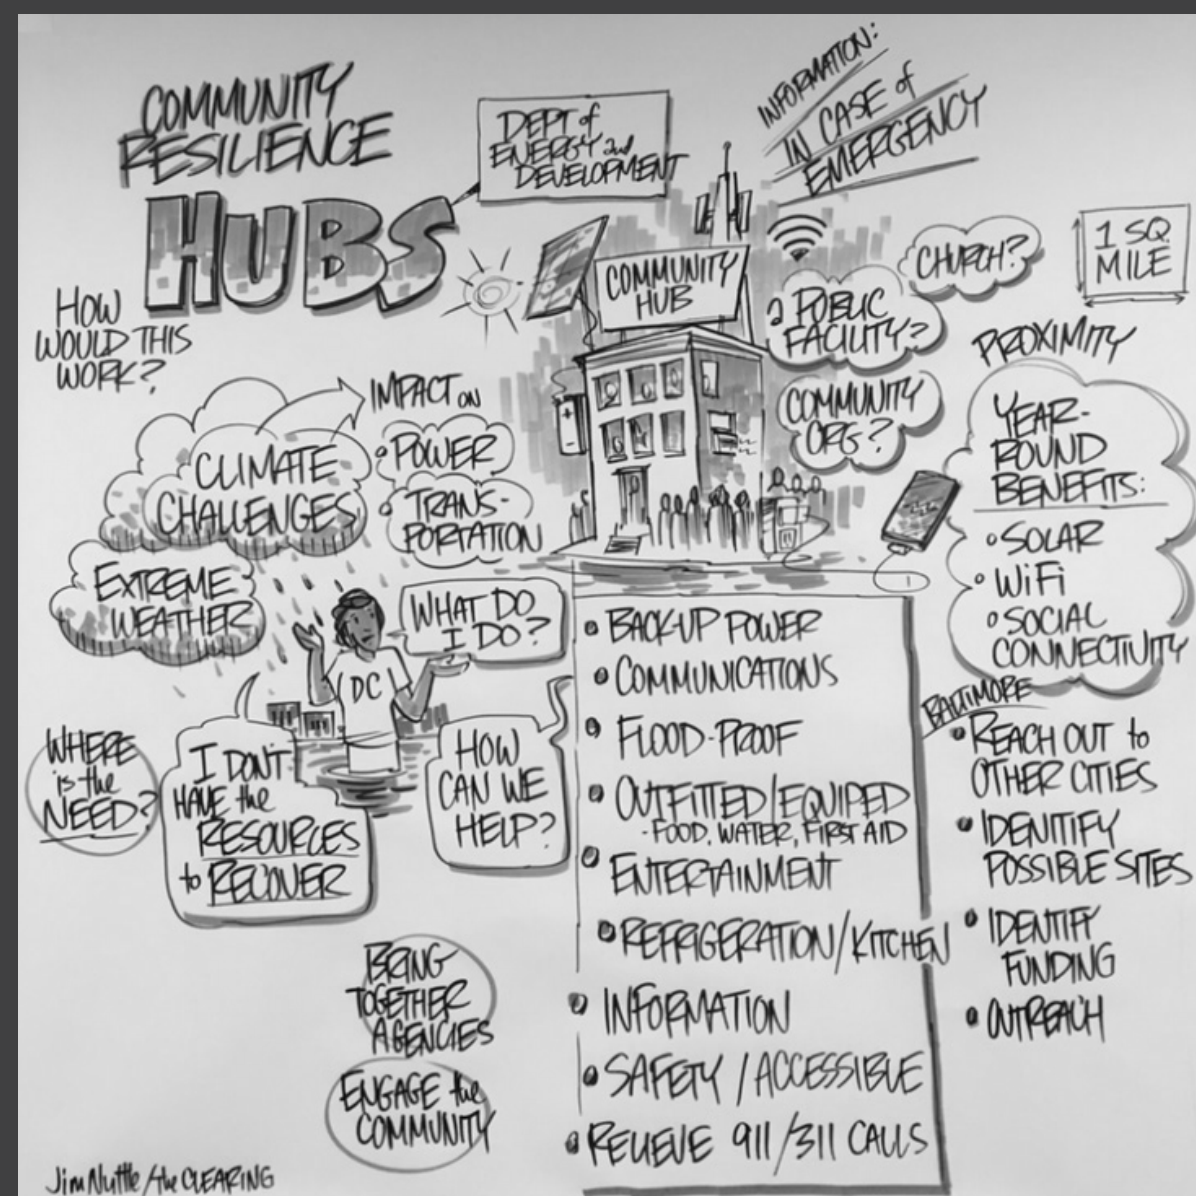 COMMUNITY
RESILIENCE
HUBS
DEPT of
ENERGY and
DEVELOPMENT
INFORMATION:
IN CASE of
EMERGENCY
HOW
WOULD THIS
WORK?
COMMUNITY
HUB
PUBLIC
FACILITY?
CHURCH?
COMMUNITY
ORG?
1 SQ
MILE
PROXIMITY
YEAR-
ROUND
BENEFITS:
SOLAR
WiFi
SOCIAL
CONNECTIVITY
IMPACT ON
POWER
TRANS-
PORTATION
CLIMATE
CHALLENGES
EXTREME
WEATHER
WHAT DO
I DO?
DC
WHERE
is the
NEED?
I DON'T
HAVE the
RESOURCES
to RECOVER
HOW
CAN WE
HELP?
BRING
TOGETHER
AGENCIES
ENGAGE the
COMMUNITY
• BACK-UP POWER
• COMMUNICATIONS
• FLOOD-PROOF
• OUTFITTED/EQUIPED
- FOOD, WATER, FIRST AID
• ENTERTAINMENT
• REFRIGERATION/KITCHEN
• INFORMATION
• SAFETY / ACCESSIBLE
• RELIEVE 911/311 CALLS
BALTIMORE
• REACH OUT to
OTHER CITIES
• IDENTIFY
POSSIBLE SITES
• IDENTIFY
FUNDING
• OUTREACH
Jim Nuttle / the CLEARING